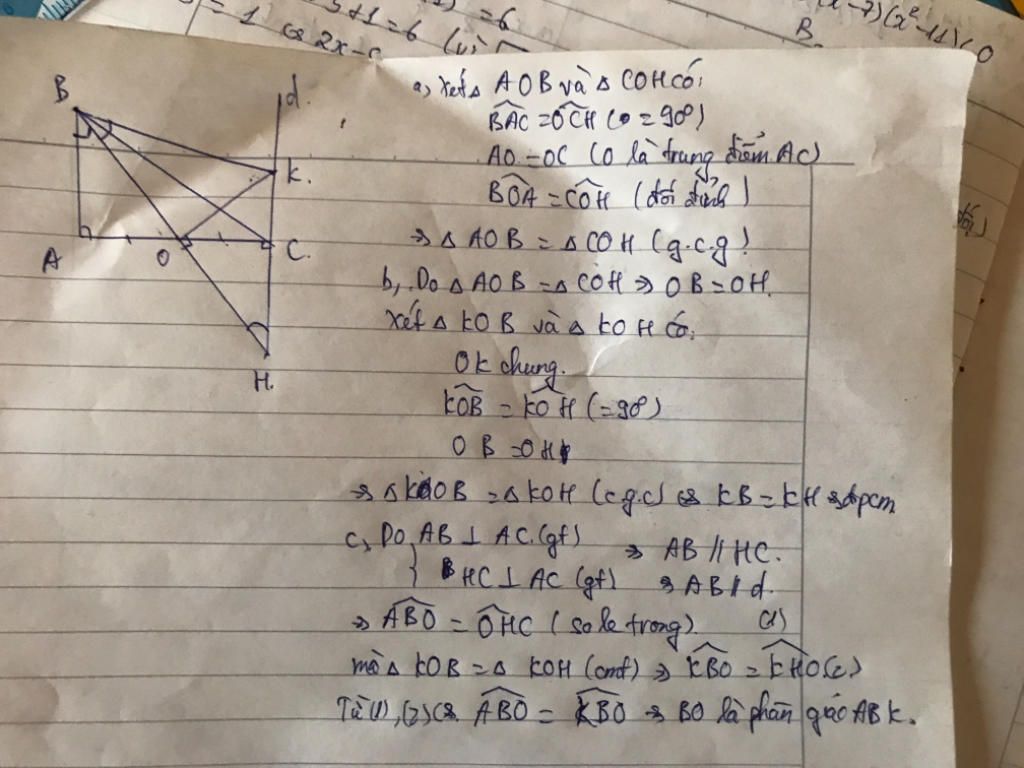 = 1
+1 = 6
= 6
⇔ 2x-
B
-7)(x²-11)<0
B
d.
K.
A
O
C.
H.
a, Xét △ AOB và △ COH có:
BAC = OCH (= 90°)
AO = OC (O là trung điểm AC)
BOA = COH (đối đỉnh)
⇒ △ AOB = △ COH (g.c.g)
b, Do △ AOB = △ COH ⇒ OB = OH.
Xét △ KOB và △ KOH có:
OK chung.
KOB = KOH (= 90°)
OB = OH
⇒ △ KOB = △ KOH (c.g.c) ⇔ KB = KH ⇒ đpcm
c, Do { AB ⊥ AC (gt) ⇒ AB // HC.
HC ⊥ AC (gt) ⇒ AB // d.
⇒ ABO = OHC (so le trong). (1)
mà △ KOB = △ KOH (cmt) ⇒ KBO = KHO (2)
Từ (1), (2) ⇔ ABO = KBO ⇒ BO là phân giác ABK.